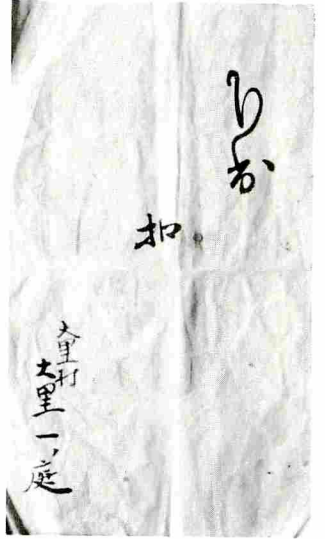 扣
大里村
大里一庭